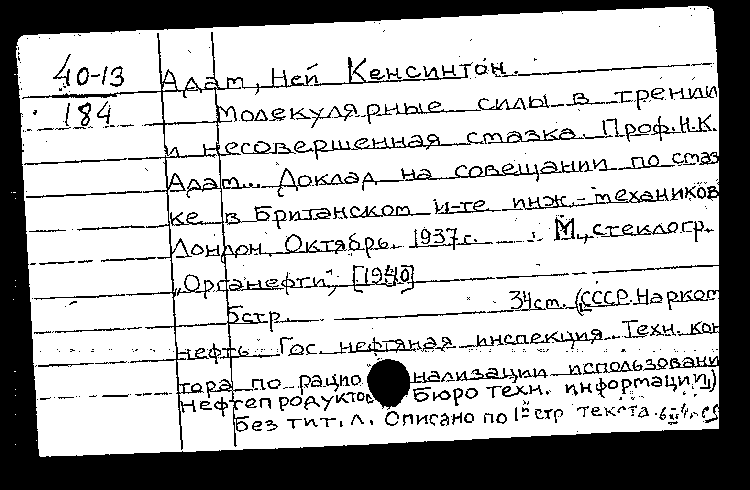 40-13
184
Адам, Ней Кенсингтон.
Молекулярные силы в трении
и несовершенная смазка. Проф. Н.К.
Адам... Доклад на совещании по смаз
ке в Британском и-те инж.-механиков
Лондон. Октябрь. 1937 г. М., стеклогр.
„Оргнефти", [1940]
6 стр. 34 см. (СССР. Нарком
нефть. Гос. нефтяная инспекция. Техн. кон
тора по рационализации использовани
нефтепродуктов Бюро техн. информации)
Без тит. л. Описано по 1й стр текста.